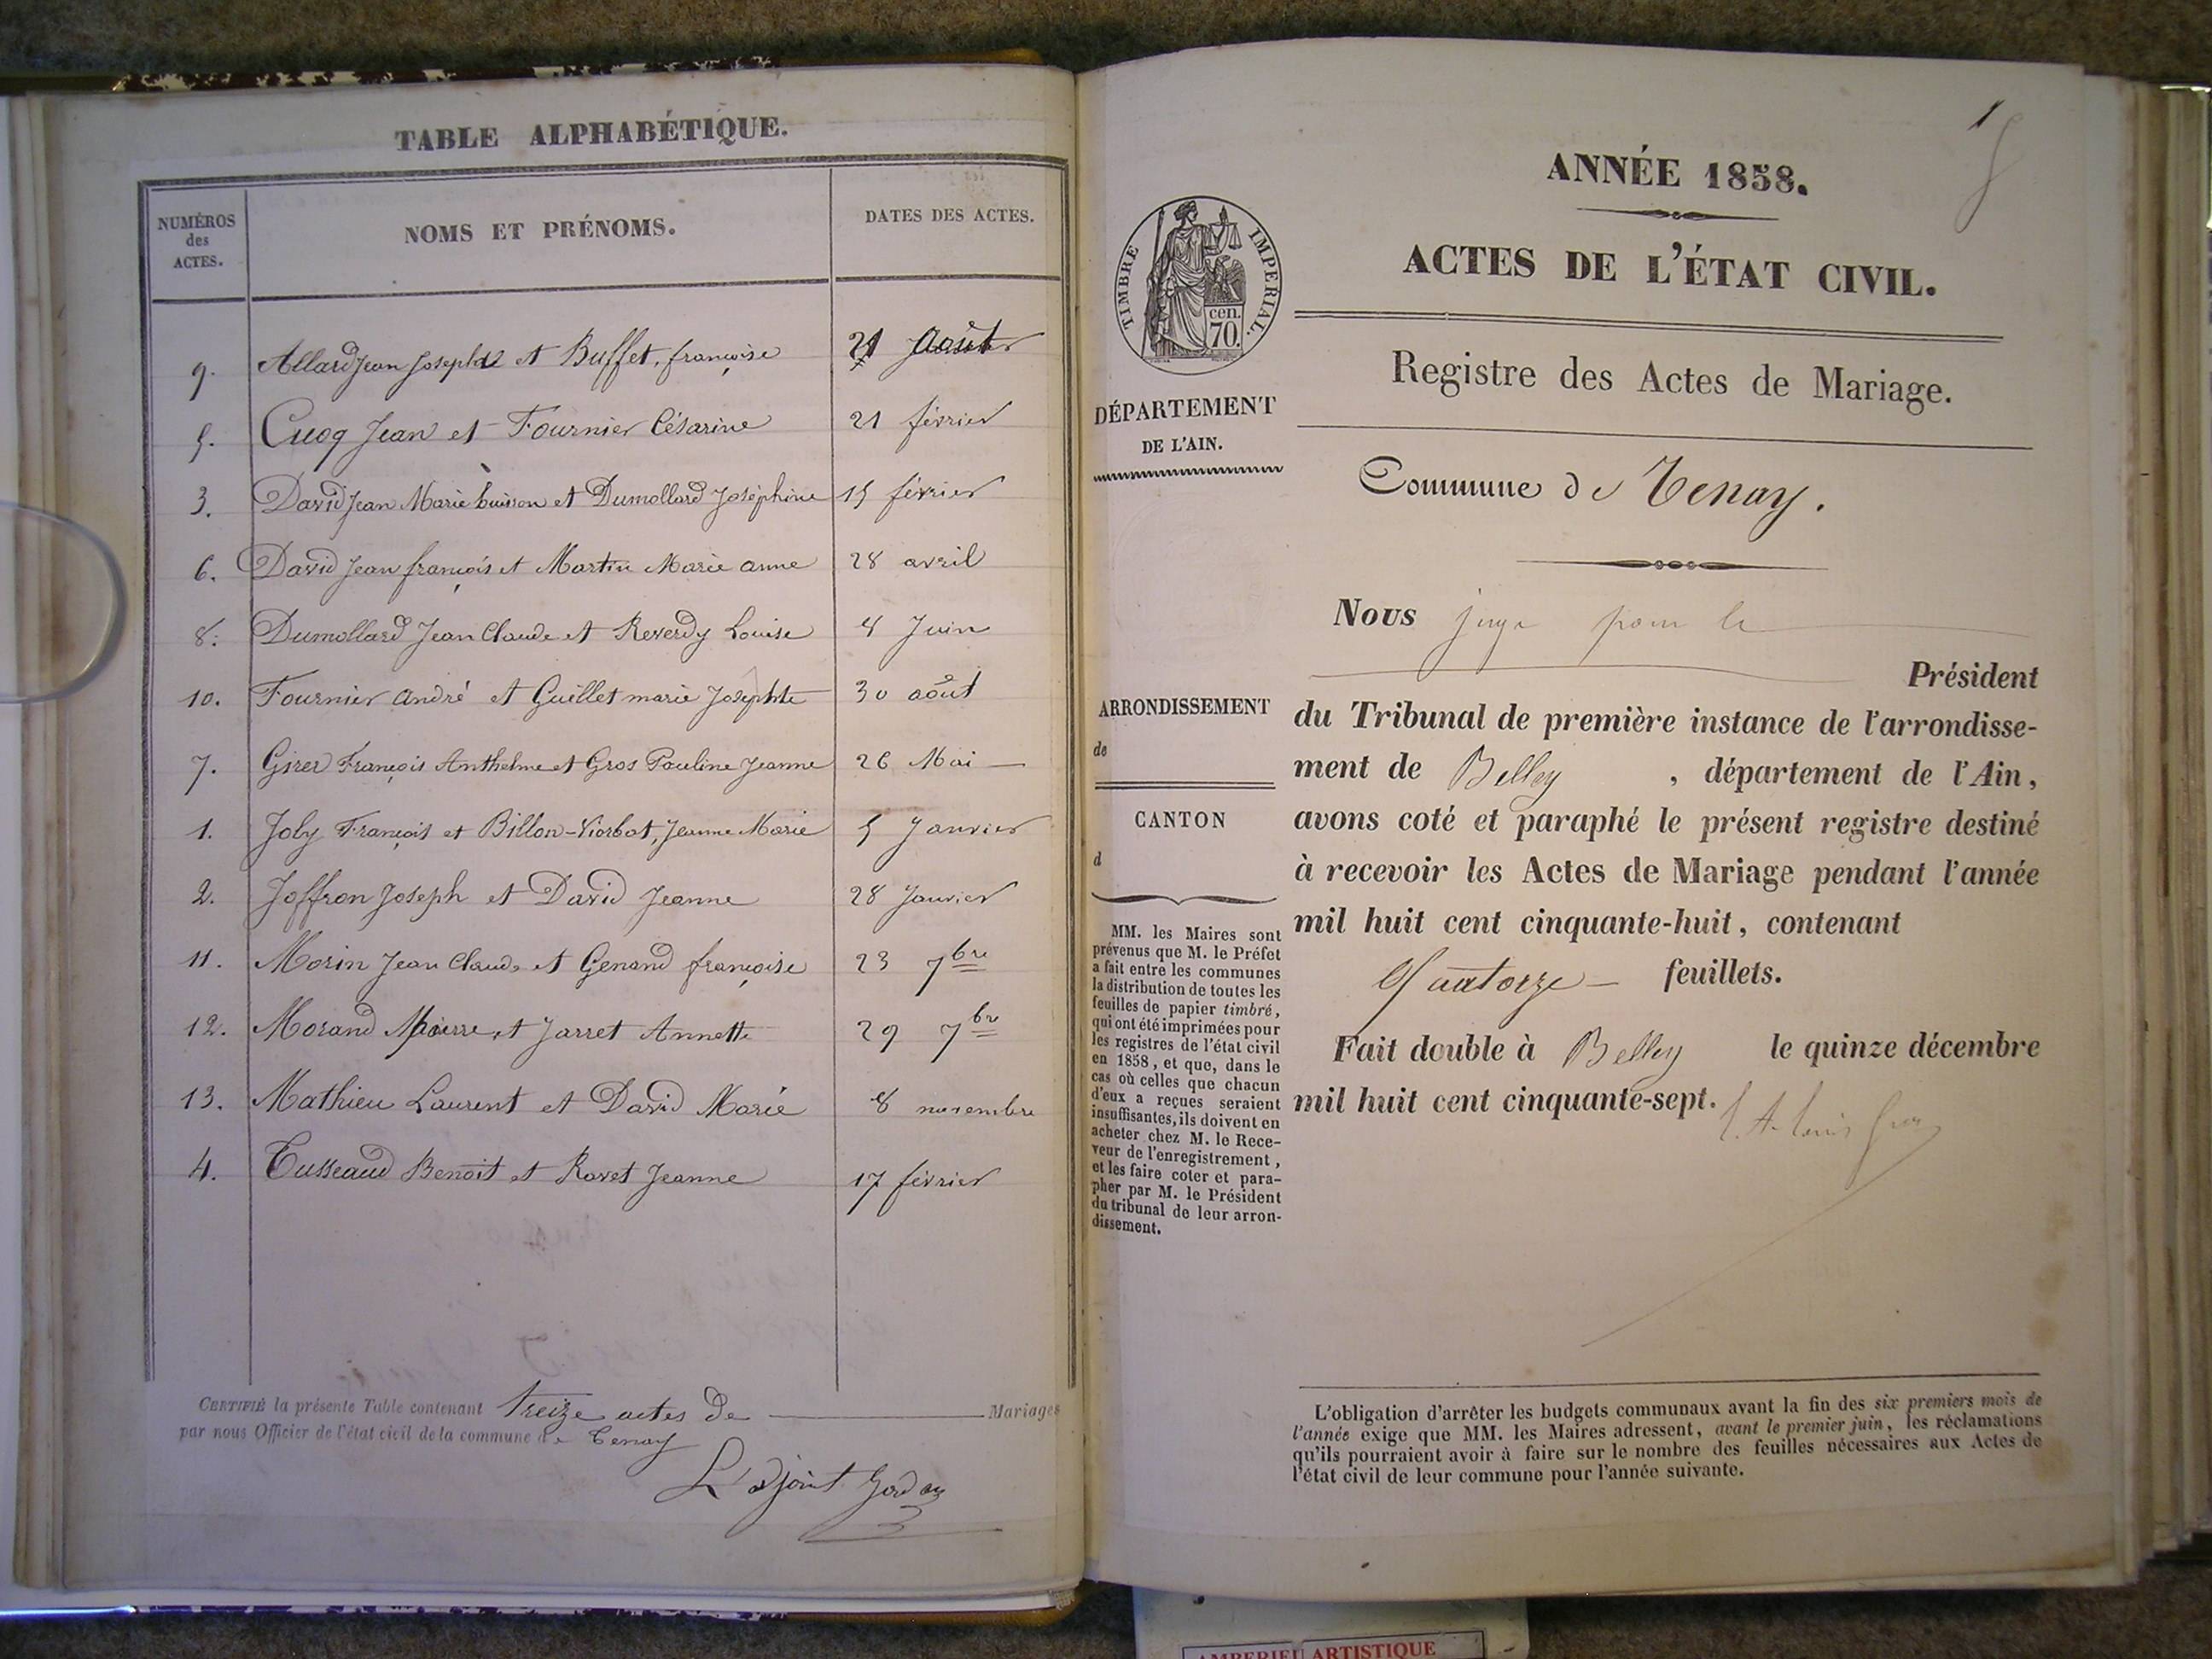 TABLE ALPHABÉTIQUE.
NUMÉROS des ACTES.
NOMS ET PRÉNOMS.
DATES DES ACTES.
9. Allard Jean Joseph et Buffet, françoise 21 Août
5. Cuoq Jean et Fournier Césarine 21 février
3. David Jean Marie buisson et Dumollard Joséphine 15 février
6. David Jean françois et Martin Marie anne 28 avril
8. Dumollard Jean Claude et Reverdy Louise 8 Juin
10. Fournier André et Guillet marie Josephte 30 août
7. Girer François Anthelme et Gros Pauline Jeanne 26 Mai
1. Joly François et Billon-Viorbot, Jeanne Marie 5 Janvier
2. Joffron Joseph et David Jeanne 28 Janvier
11. Morin Jean Claude et Genand françoise 23 7bre
12. Morand Pierre et Jarret Annette 29 7bre
13. Mathieu Laurent et David Marie 8 novembre
4. Tusseaud Benoit et Ravet Jeanne 17 février
CERTIFIÉ la présente Table contenant treize actes de Mariages
par nous Officier de l'état civil de la commune de Tenay
L'adjoint
1
ANNÉE 1858.
ACTES DE L'ÉTAT CIVIL.
TIMBRE IMPERIAL.
cen.
70.
Registre des Actes de Mariage.
DÉPARTEMENT
DE L'AIN.
Commune de Tenay.
Nous juge pour le
Président
ARRONDISSEMENT
de
du Tribunal de première instance de l'arrondisse-
ment de Belley , département de l'Ain,
avons coté et paraphé le présent registre destiné
à recevoir les Actes de Mariage pendant l'année
mil huit cent cinquante-huit, contenant
quatorze feuillets.
Fait double à Belley le quinze décembre
mil huit cent cinquante-sept.
CANTON
d
MM. les Maires sont
prévenus que M. le Préfet
a fait entre les communes
la distribution de toutes les
feuilles de papier timbré,
qui ont été imprimées pour
les registres de l'état civil
en 1858, et que, dans le
cas où celles que chacun
d'eux a reçues seraient
insuffisantes, ils doivent en
acheter chez M. le Rece-
veur de l'enregistrement,
et les faire coter et para-
pher par M. le Président
du tribunal de leur arron-
dissement.
L'obligation d'arrêter les budgets communaux avant la fin des six premiers mois de
l'année exige que MM. les Maires adressent, avant le premier juin, les réclamations
qu'ils pourraient avoir à faire sur le nombre des feuilles nécessaires aux Actes de
l'état civil de leur commune pour l'année suivante.
AMBERIEU ARTISTIQUE